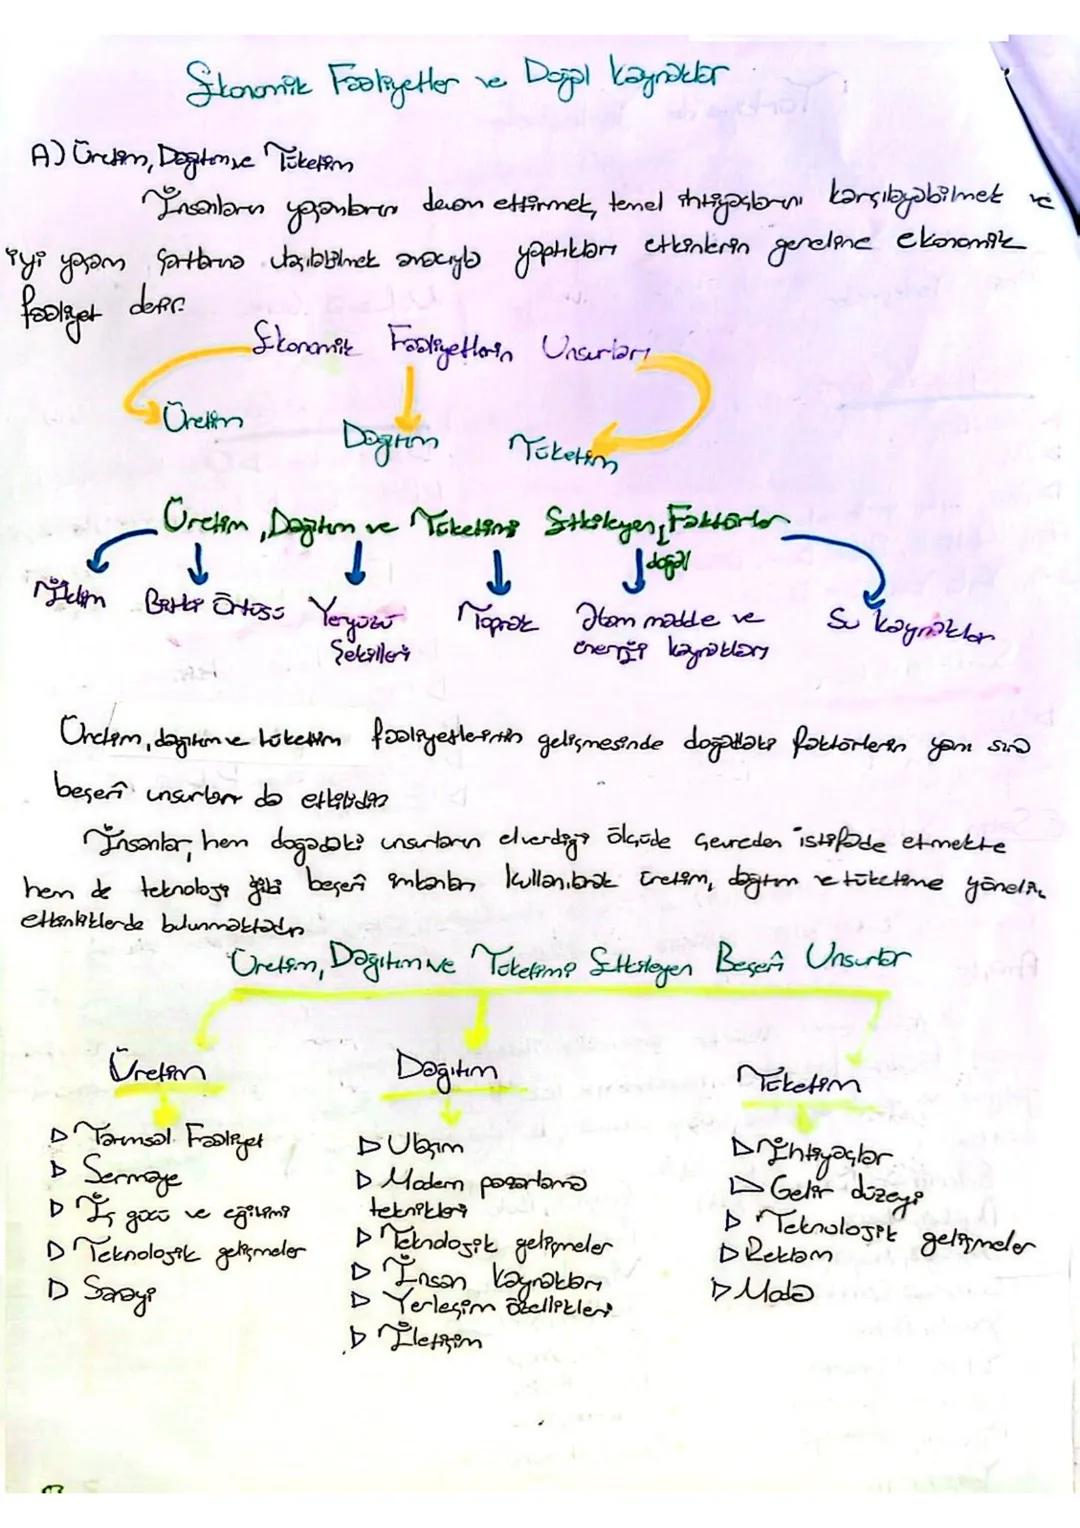 Ekonomik Faaliyetler ve Doğal Kaynaklar
A) Üretim, Dağıtım ve Tüketim
İnsanların yaşamlarını devam ettirmek, temel ihtiyaçlarını karşılayabilmek ve
iyi yaşam şartlarına ulaşılabilmek amacıyla yaptıkları etkinlerin geneline ekonomik
faaliyet denir.
Ekonomik Faaliyetlerin Unsurları
Üretim
Dağıtım
Tüketim
Üretim, Dağıtım ve Tüketimi Etkileyen Faktörler
doğal
İklim Bitki Örtüsü Yeryüzü Toprak Ham madde ve Su kaynakları
Şekilleri enerji kaynakları
Üretim, dağıtım ve tüketim faaliyetlerinin gelişmesinde doğadaki faktörlerin yanı sıra
beşerî unsurlar da etkilidir.
İnsanlar, hem doğadaki unsurların elverdiği ölçüde çevreden istifade etmekte
hem de teknoloji gibi beşerî imkanları kullanılarak üretim, dağıtım ve tüketime yönelik
etkinliklerde bulunmaktadır
Üretim, Dağıtım ve Tüketimi Etkileyen Beşerî Unsurlar
Üretim
▷ Tarımsal Faaliyet
▷ Sermaye
▷ İş gücü ve eğilimi
▷ Teknolojik gelişmeler
▷ Sanayi
Dağıtım
▷ Ulaşım
▷ Modern pazarlama
teknikleri
▷ Teknolojik gelişmeler
▷ İnsan kaynakları
▷ Yerleşim özellikleri
▷ İletişim
Tüketim
▷ İhtiyaçlar
▷ Gelir düzeyi
▷ Teknolojik gelişmeler
▷ Reklam
▷ Moda